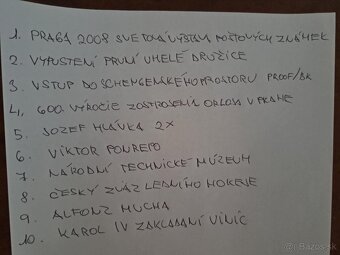 1. PRAGA 2008 SVETOVÁ VÝSTAVA POŠTOVÝCH ZNÁMEK
2. VYPUSTENÍ PRVNÍ UMELÉ DRUŽICE
3. VSTUP DO SCHENGENSKÉHO PROSTORU PROOF/BK
4. 600. VÝROČIE ZOSTROJENÍ ORLOJA V PRAHE
5. JOZEF HLÁVKA 2X
6. VIKTOR PONREPO
7. NÁRODNÍ TECHNICKÉ MÚZEUM
8. ČESKÝ ZVÄZ LEDNÍHO HOKEJE
9. ALFONZ MUCHA
10. KAROL IV ZAKLADANÍ VINÍC
Bazos.sk